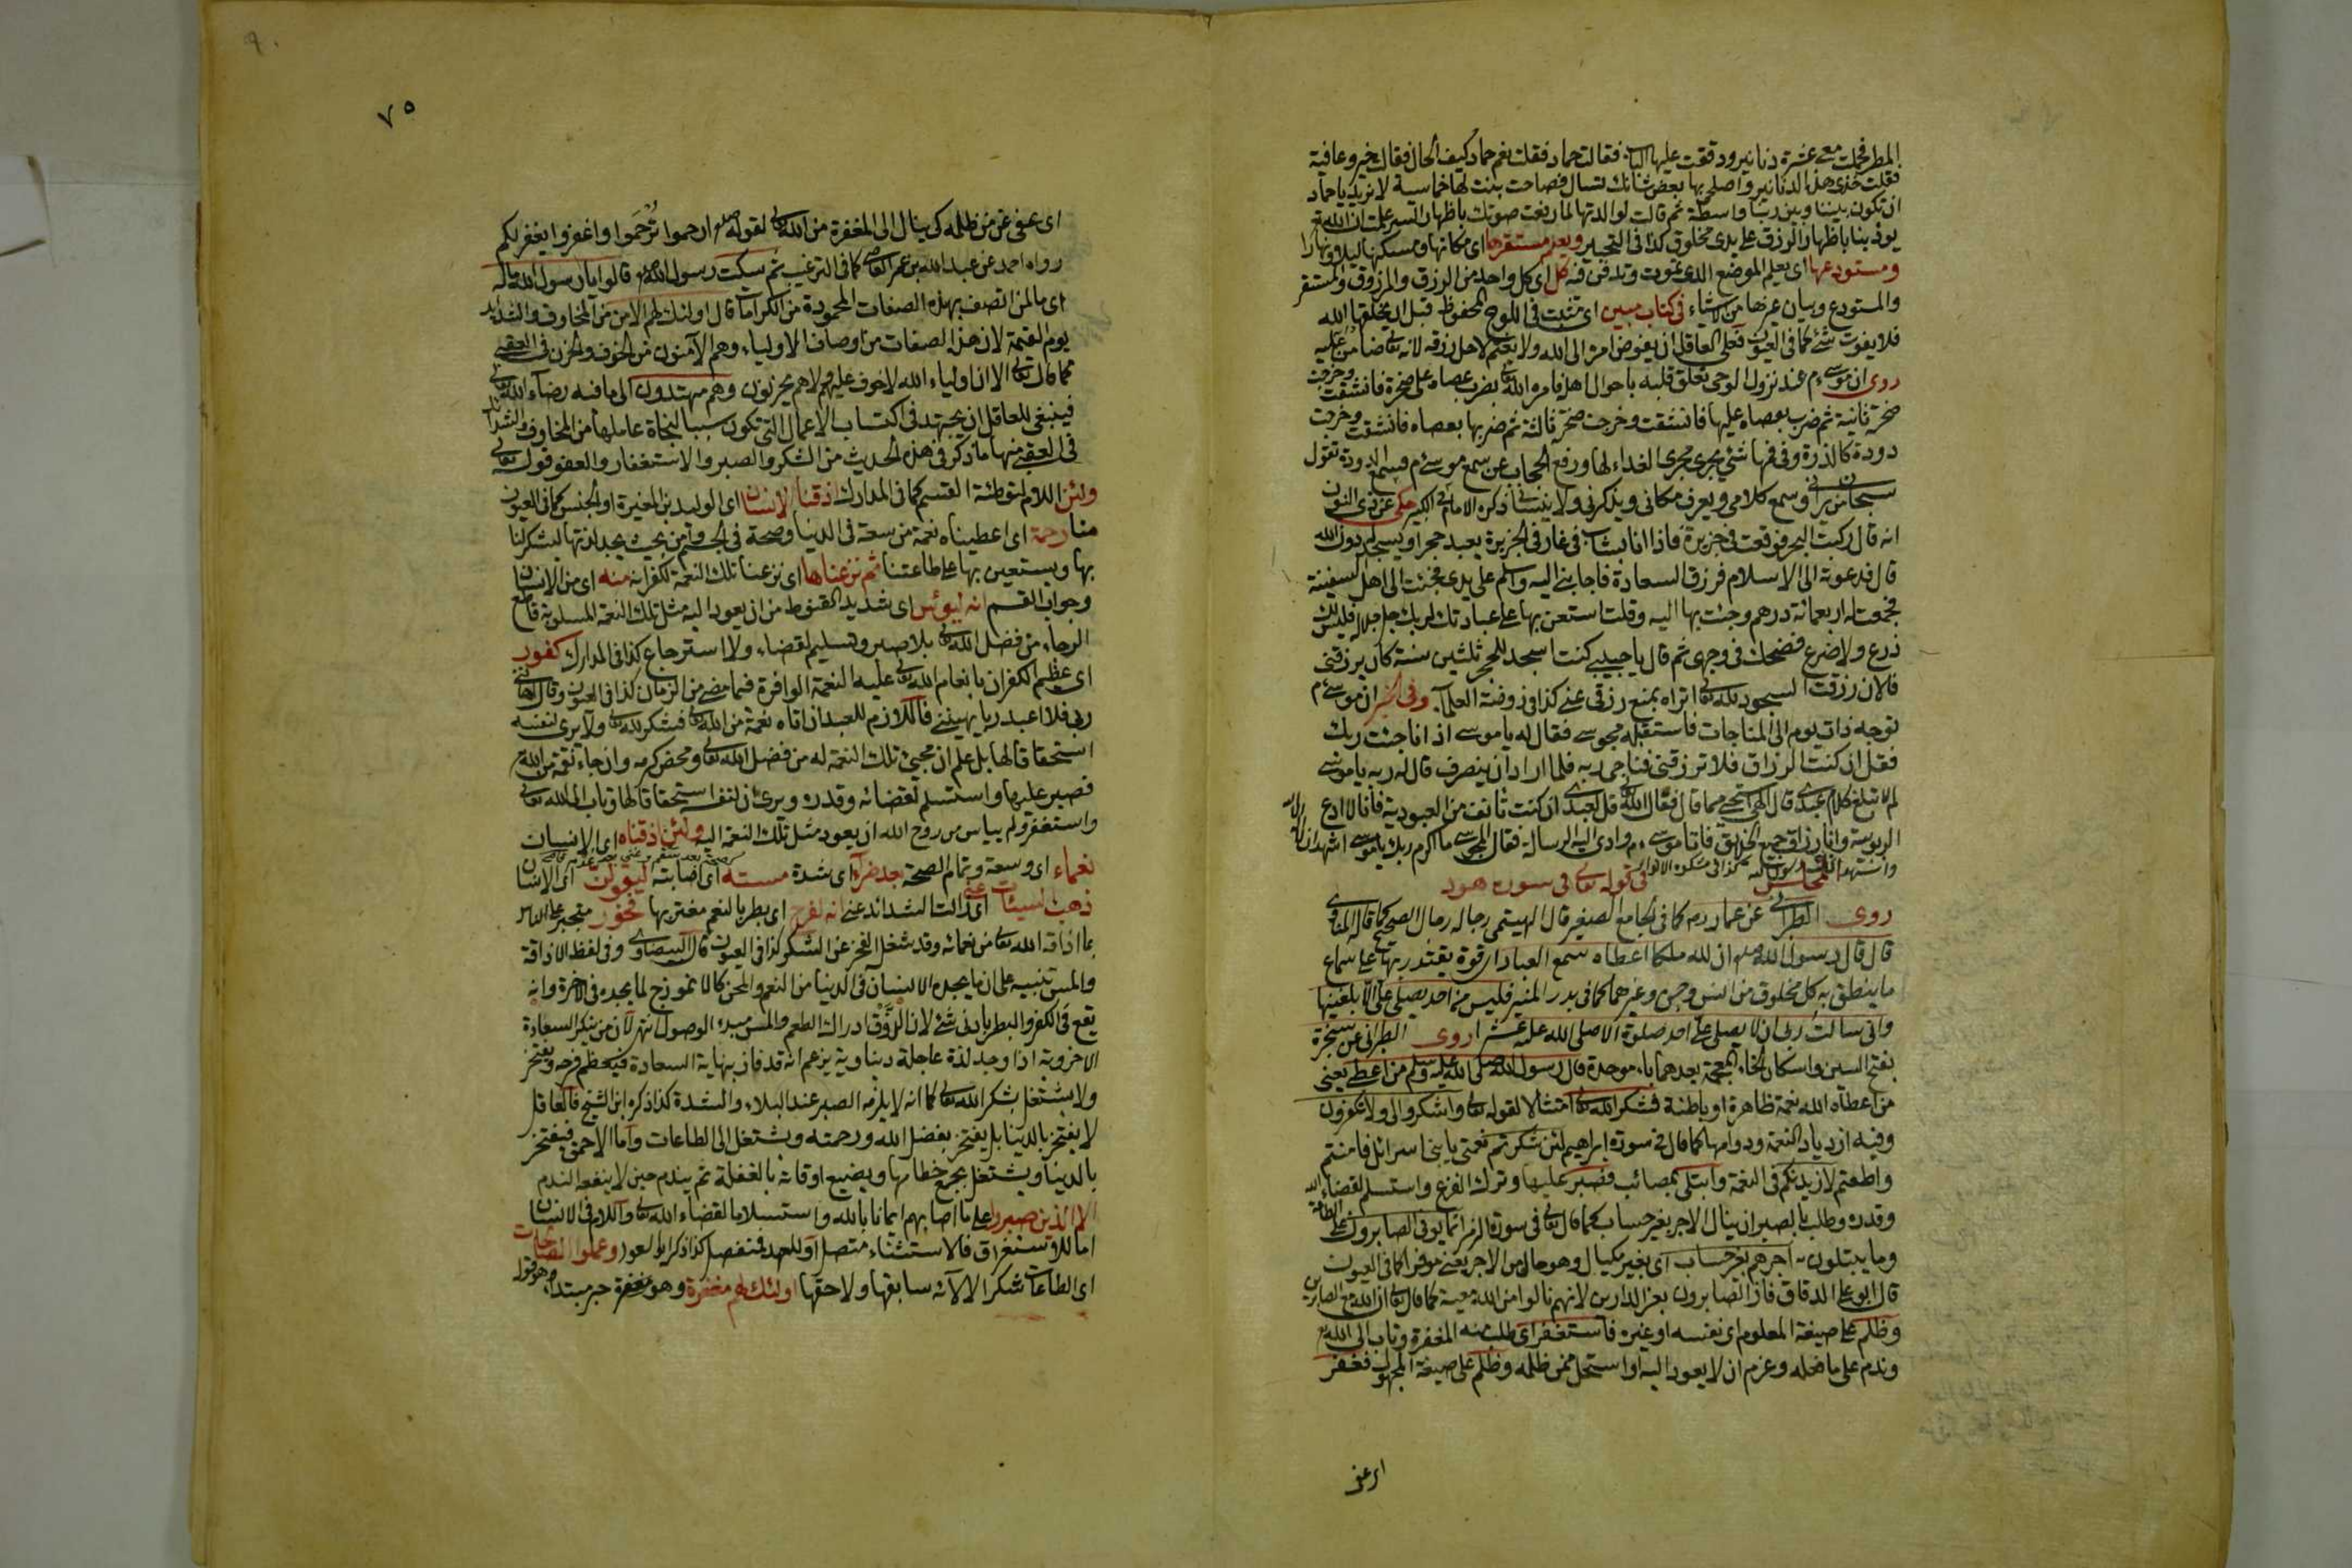 المطر فحملت معي عشرة دنانير ودققت عليها الباب فقالت حماد فقلت نعم حماد كيف الحال فقالت خير وعافية
فقلت خذي هذه الدنانير واصلحي بها بعض شانك لتسال فصاحت بنت لها خماسية لا نريد يا حماد
ان تكون بيننا وبين ربنا واسطة ثم قالت لوالدتها لما رفعت صوتك باظهار السر علمت ان الله
يؤدبنا باظهار الرزق على يدي مخلوق كذا في التحبير ويعلم مستقرها اي مكانها ومسكنها ليلا ونهارا
ومستودعها اي يعلم الموضع الذي تموت وتدفن فيه كل اي كل واحد من الرزق والمرزوق والمستقر
والمستودع وبيان غيرها من الاشياء في كتاب مبين اي مثبت في اللوح المحفوظ قبل ان يخلقها الله
فلا يفوت شئ كما في العيون فعلى العاقل ان يفوض امره الى الله ولا يغتم لاجل رزقه لانه تعالى ضامن عليه
روى ان موسى م عند نزول الوحي تعلق قلبه باحوال اهله فامره الله تعالى بضرب عصاه على صخرة فانشقت وخرجت
صخرة ثانية ثم ضرب بعصاه عليها فانشقت وخرجت صخرة ثالثة ثم ضربها بعصاه فانشقت وخرجت
دودة كالذرة وفي فمها شئ يجري مجرى الغذاء لها ورفع الحجاب عن سمع موسى م فسمع الدودة تقول
سبحان من يراني ويسمع كلامي ويعرف مكاني ويذكرني ولا ينساني ذكره الامام في الكبير حكي عن ذي النون
انه قال ركبت البحر فوقعت في جزيرة فاذا انا بشاب في غار في الجزيرة يعبد حجرا ويسجد له دون الله
قال فدعوته الى الاسلام فرزق السعادة فاجابني اليه واسلم على يدي فجئت الى اهل السفينة
فجمعت له اربعمائة درهم وجئت بها اليه وقلت استعن بها على عبادتك لربك جل جلاله فليس لك
ذرع ولا ضرع فضحك في وجهي ثم قال يا حبيبي كنت اسجد للحجر ثلثين سنة كان يرزقني
فالان رزقت السجود لله تعالى اتراه يمنع رزقي عني كذا في روضة العلماء وفي الخبر ان موسى م
توجه ذات يوم الى المناجات فاستقبله مجوسي فقال له يا موسى اذا جئت ربك
فقل ان كنت الرزاق فلا ترزقني فناجى ربه فلما اراد ان ينصرف قال له ربه يا موسى
لم لا تبلغ كلام عبدي قال الهي استحيي مما قال فقال الله تعالى قل لعبدي ان كنت تانف من العبودية فانا لا ادع
الربوبية وانا رزاق جميع الخلائق فاتا موسى م وادى اليه الرسالة فقال المجوسي ما اكرم ربك يا موسى اشهد ان لا اله الا الله
واشهد انك رسول الله كذا في مشكوة الانوار المجلس في قوله تعالى في سورة هود
روى الطبراني عن عمار رضه كما في الجامع الصغير قال الهيتمي رجاله رجال الصحيح كما قاله المناوي
قال قال رسول الله صلعم ان لله ملكا اعطاه سمع العباد اي قوة يقتدر بها على سماع
ما ينطق به كل مخلوق من انس وجن وغيرهما كما في بدر المنير فليس من احد يصلي علي الا بلغنيها
واني سالت ربي ان لا يصلي علي احد صلوة الا صلى الله عليه عشرا روى الطبراني عن سخبرة
بفتح السين واسكان الخاء المعجمة بعدهما باء موحدة قال رسول الله صلى الله عليه وسلم من اعطي يعني
من اعطاه الله نعمة ظاهرة او باطنة فشكر الله تعالى امتثالا لقوله تعالى واشكروا لي ولا تكفرون
وفيه ازدياد النعمة ودوامها كما قال في سورة ابراهيم لئن شكرتم نعمتي يا بني اسرائل فامنتم
واطعتم لازيدنكم في النعمة وابتلي بمصائب فصبر عليها وترك الفزع واستسلم لقضاء الله
وقدره وطلب بالصبر ان ينال الاجر بغير حساب كما قال تعالى في سورة الزمر انما يوفى الصابرون على الطاعة
وما يبتلون به اجرهم بغير حساب اي بغير مكيال وهو حال من الاجر يعني موفرا كما في العيون
قال ابو علي الدقاق فاز الصابرون بعز الدارين لانهم نالوا من الله معيته كما قال تعالى ان الله مع الصابرين
وظلم على صيغة المعلوم اي نفسه او غيره فاستغفر اي طلب منه المغفرة وتاب الى الله تع
وندم على ما فعله وعزم ان لا يعود اليه او استحل ممن ظلمه وظلم على صيغة المجهول فغفر
اي عفى
٧٥
٩٠
اي عفى عن من ظلمه كي ينال الى المغفرة من الله تعالى لقوله صلعم ارحموا ترحموا واغفروا يغفر لكم
رواه احمد عن عبد الله بن عمر العاص كما في الترغيب ثم سكت رسول الله صم قالوا يا رسول الله ما له
اي ما لمن اتصف بهذه الصفات المحمودة من الكرامات قال اولئك لهم الامن من المخاوف والشدايد
يوم القيمة لان هذه الصفات من اوصاف الاولياء وهم الآمنون من الخوف والحزن في العقبى
كما قال تعالى الا ان اولياء الله لا خوف عليهم ولا هم يحزنون وهم مهتدون الى ما فيه رضاء الله تعالى
فينبغي للعاقل ان يجتهد في اكتساب الاعمال التي تكون سببا لنجاة عاملها من المخاوف والشدائد
في العقبى منها ما ذكر في هذه الحديث من الشكر والصبر والاستغفار والعفو قوله تعالى
ولئن اللام لتوطئة القسم كما في المدارك اذقنا الانسان اي الوليد بن المغيرة او الجنس كما في العيون
منا رحمة اي اعطيناه نعمة من سعة في الدنيا وصحة في الجسم وامن بحيث يجد لذتها ليشكرلنا
بها ويستعين بها على طاعتنا ثم نزعناها اي نزعنا تلك النعمة لكفرانه منه اي من الانسان
وجواب القسم انه ليؤس اي شديد القنوط من ان يعود اليه مثل تلك النعمة المسلوبة قاطع
الرجاء من فضل الله تعالى بلا صبر وتسليم لقضاء ولا استرجاع كذا في المدارك كفور
اي عظيم الكفران بانعام الله تعالى عليه النعمة الوافرة فيما مضى من الزمان كذا في العيون وقال اهانني
ربي فلا اعبد ربا يهينني فاللازم للعبد اذا اتاه نعمة من الله تعالى فشكر لله تعالى ولا يرى لنفسه
استحقاقا لها بل علم ان مجيئ تلك النعمة له من فضل الله تعالى ومحض كرمه وان جاء نقمة من الله تع
فصبر عليها واستسلم لقضائه وقدره ويرى ان لنفسه استحقاقا لها وتاب الى الله تعالى
واستغفر ولم ييأس من روح الله ان يعود مثل تلك النعمة اليه ولئن اذقناه اي الانسان
نعماء اي وسعة وتمام الصحة بعد ضراء اي شدة مسته اي اصابته ليقولن اي الانسان
ذهب السيئات عني اي زالت الشدائد عني انه لفرح اي بطر بالنعم مغتر بها فخور متجبر على الناس
بما اذاقه الله تعالى من نعمائه وقد شغله الفخر عن الشكر كذا في العيون قال البيضاوي وفي لفظ الاذاقة
والمس تنبيه على ان ما يجده الانسان في الدنيا من النعم والمحن كالانموذج لما يجده في الاخرة وانه
يقع في الكفر والبطر بادنى شئ لان الذوق ادراك الطعم والمس مبدء الوصول انتهى لان من ينكر السعادة
الاخروية اذا وجد لذة عاجلة دنياوية يزعم انه قد فاز بنهاية السعادة فيعظم فرحه ويفتخر
ولا يشتغل بشكر الله تعالى كما انه لا يلزمه الصبر عند البلاء والشدة كذا ذكره ابن الشيخ فالعاقل
لا يفتخر بالدنيا بل يفتخر بفضل الله ورحمته ويشتغل الى الطاعات واما الاحمق فيفتخر
بالدنيا ويشتغل بجمع حطامها ويضيع اوقاته بالغفلة ثم يندم حين لا ينفعه الندم
الا الذين صبروا على ما اصابهم ايمانا بالله واستسلاما لقضاء الله تعالى واللام في الانسان
اما للاستغراق فالاستثناء متصل او للعهد فمنفصل كذا ذكر ابو السعود وعملوا الصالحات
اي الطاعات شكرا لالآئه سابقها ولاحقها اولئك لهم مغفرة وهو مغفرة خبر مبتداء وهو قوله